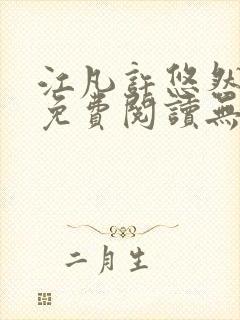 江凡許悠然
免費閱讀無
二月生